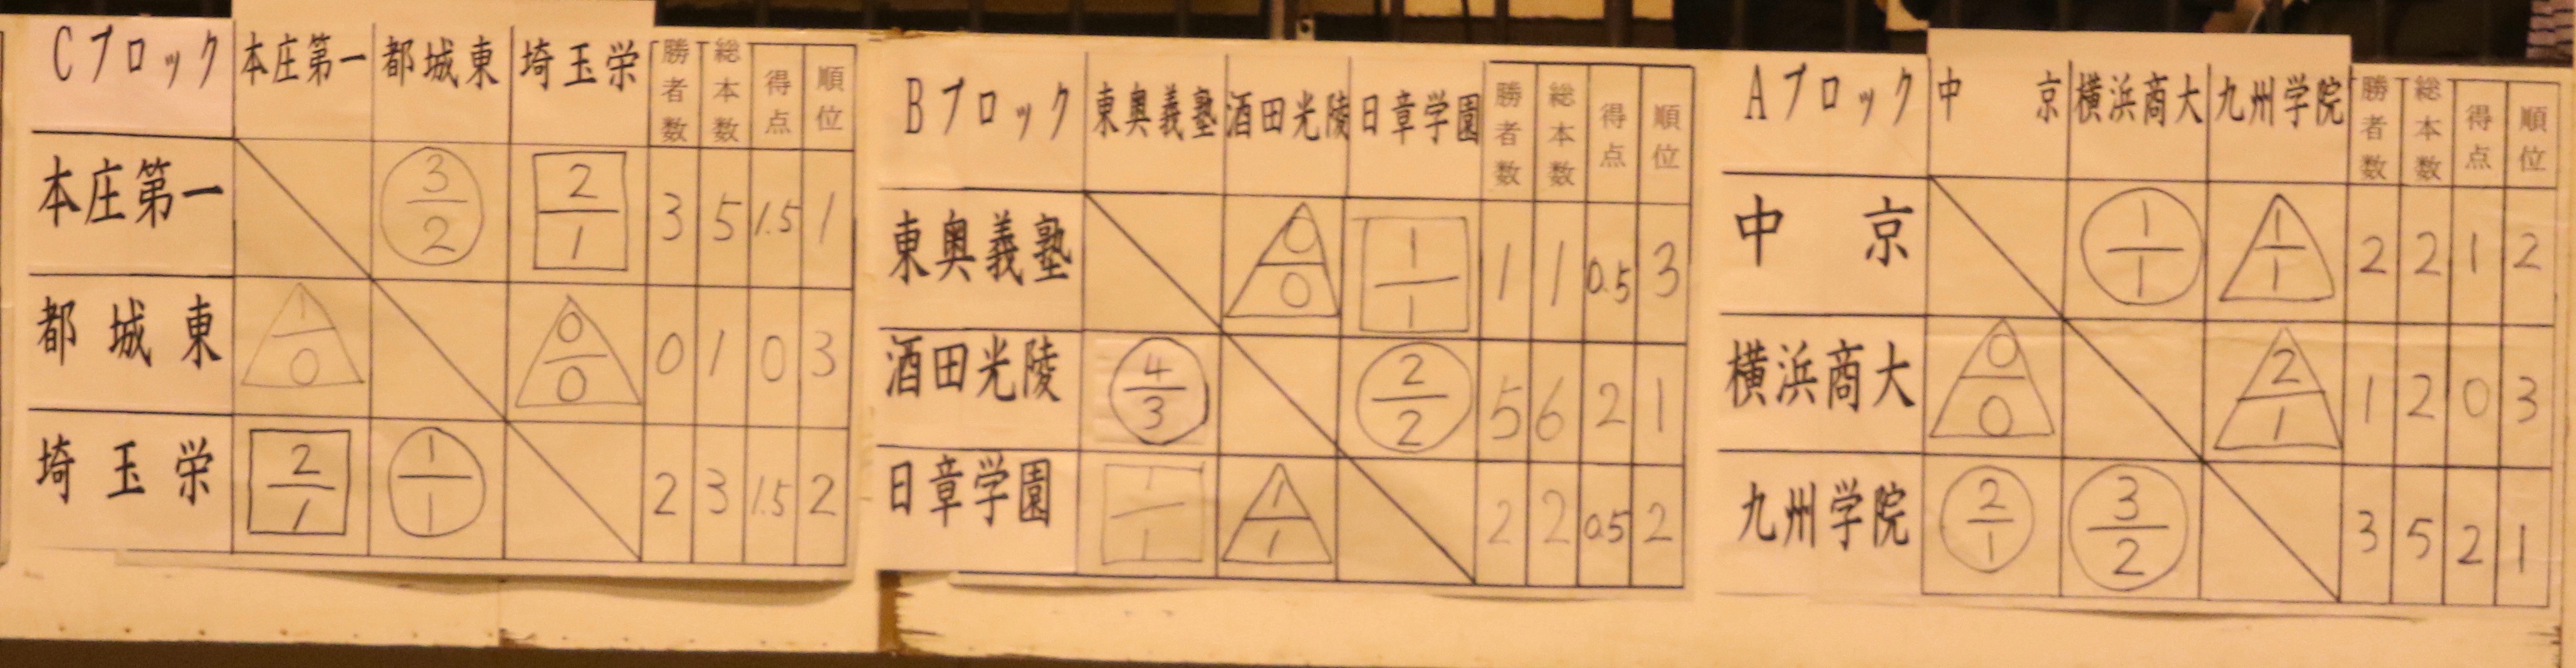 Cブロック 本庄第一 都城東 埼玉栄 勝者数 総本数 得点 順位
本庄第一 3/2 2/1 3 5 1.5 1
都城東 1/0 0/0 0 1 0 3
埼玉栄 2/1 1/1 2 3 1.5 2
Bブロック 東奥義塾 酒田光陵 日章学園 勝者数 総本数 得点 順位
東奥義塾 0/0 1/1 1 1 0.5 3
酒田光陵 4/3 2/2 5 6 2 1
日章学園 1/1 1/1 2 2 0.5 2
Aブロック 中京 横浜商大 九州学院 勝者数 総本数 得点 順位
中京 1/1 1/1 2 2 1 2
横浜商大 0/0 2/1 1 2 0 3
九州学院 2/1 3/2 3 5 2 1